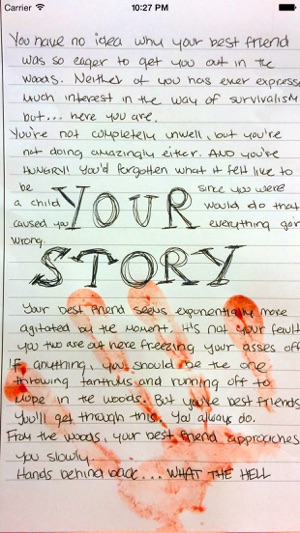 Carrier 10:27 PM
You have no idea why your best friend
was so eager to get you out in the
woods. Neither of you has ever express
much interest in the way of survivalism
but... here you are.
You're not completely unwell, but you're
not doing amazingly either. AND you're
HUNGRY! You'd forgotten what it felt like to
be since you were
a child would do that
caused you everything gor
wrong.
YOUR
STORY
Your best friend seems exponentially more
agitated by the moment. It's not your fault
you two are out here freezing your asses off
If anything, you should be the one
throwing tantrums and running off to
mope in the woods. But you're best friends
You'll get through this. You always do.
From the woods, your best friend approaches
you slowly.
Hands behind back... WHAT THE HELL